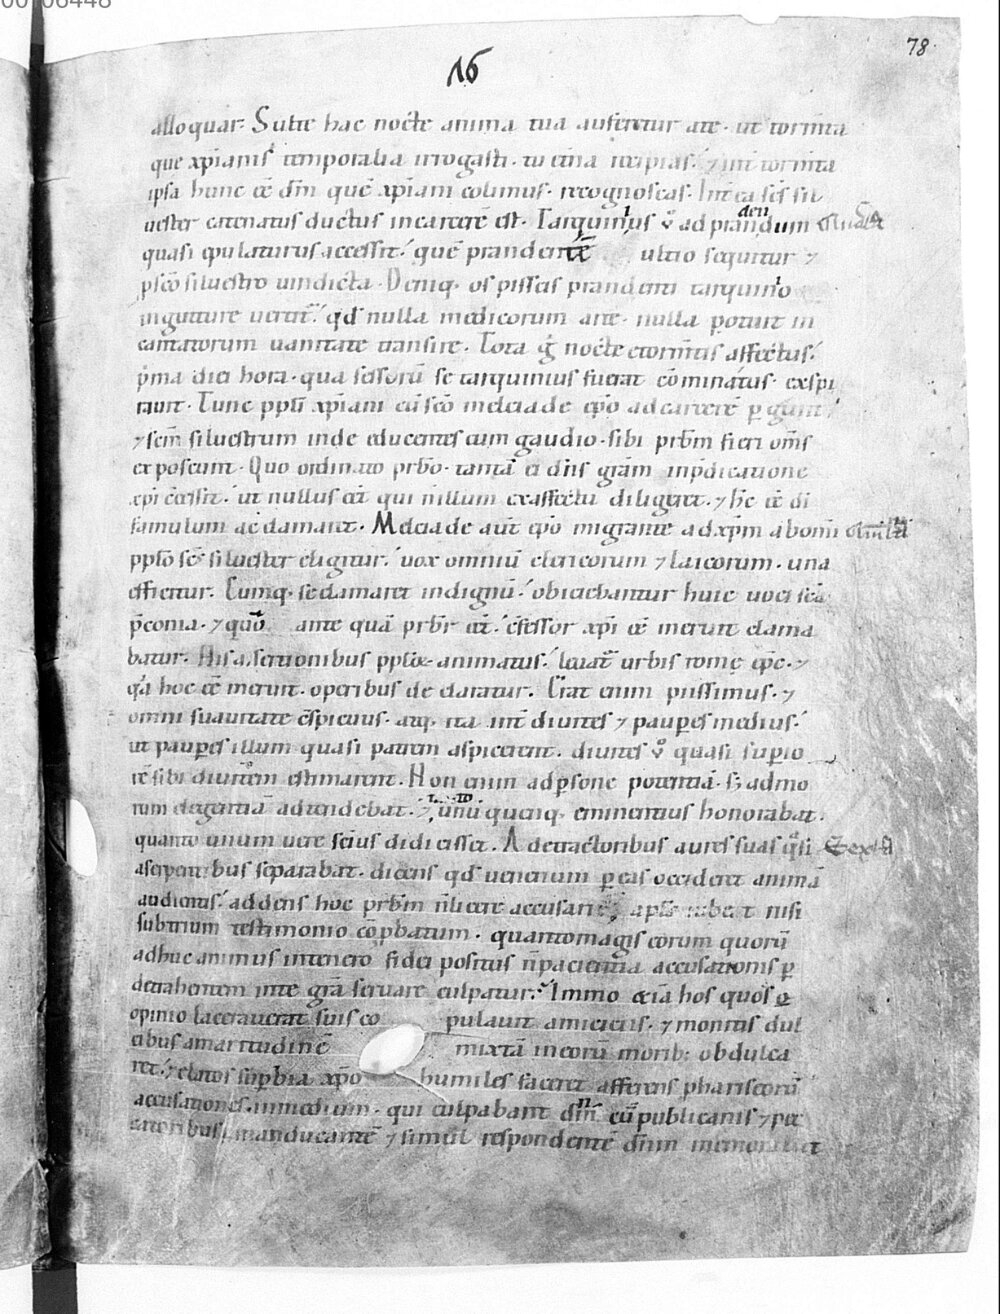 00006448
78
16
alloquar. Stulte hac nocte anima tua auferetur a te. ut torm̄ta
que xp̄ianis temporalia irrogasti. tu et̄na recipias. ⁊ int̄ torm̄ta
ipsa hunc ēē dm̄ quē xp̄iani colimus. recognoscas. Int̄ea sc̄s sil
uester catenatus ductus in carcerē est. Tarquinius v̊ ad prandendum
quasi epulaturus accessit. quē prandentē ultio sequitur ⁊
p sc̄o siluestro uindicta. Deniq. os piscis prandenti tarquinio
in gutture uertit̄. qd̄ nulla medicorum arte. nulla potuit in
cantatorum uanitate transire. Tota g̊ nocte e torm̄tis affectus.
p̄ma diei hora. qua sessorū se tarquinius fuerat cōminatus. exspi
rauit. Tunc pp̄li xp̄iani cū sc̄o melciade ep̄o ad carcerē pergunt.
⁊ sc̄m siluestrum inde educentes cum gaudio. sibi prb̄m fieri om̄s
exposcunt. Quo ordinato prb̄o. tantā ei dn̄s grām in p̄dicatione
xp̄i c̄cessit. ut nullus eēt qui n̄ illum ex affectu diligeret. ⁊ hc̄ ēē di
famulum acclamaret. Melciade aut̄ ep̄o migrante ad xp̄m ab omni
pp̄lo sc̄s siluester eligitur. uox omniū clericorum ⁊ laicorum. una
efficitur. Cumq. se clamaret indignū. obiciebantur huic uoci sc̄a
p̄conia. ⁊ quō ante quā prb̄r eēt. c̄fessor xp̄i ēē meruit clama
batur. His assertionibus pp̄lox animatus. leuat̄ urbis romę ep̄c. ⁊
q̊a hoc ēē meruit. operibus declaratur. Erat enim piissimus. ⁊
omni suauitate c̄spicuus. atq. ita int̄ diuites ⁊ paup̄es medius.
ut paup̄es illum quasi patrem aspicerent. diuites v̊ quasi supio
rē sibi diuitem estimarent. Non enim ad p̄sone potentiā. s; ad mo
rum elegantiā adtendebat. ⁊ unū quenq. eminentius honorabat.
quanto unum uere sc̄ius didicisset. A detractoribus aures suas q̊si
a serpentibus separabat. dicens qd̄ uenenum p eas occideret animā
audientis. addens hoc prb̄m n̄ licere accusari apl̄s iubet nisi
sub trium testimonio cōp̄batum. quanto magis eorum quorū
adhuc animus in tenero fidei positus n̄ pacientia accusationis p
detrahentem inte grā seruare culpatur. Immo etiā hos quos
opinio lacerauerat suis copulauit amiciciis. ⁊ monitis dul
cibus amaritudinē mixtā in eorū morib; obdulca
ret. ⁊ elatos suphia xp̄o humiles faceret afferens phariseorū
accusationes in medium. qui culpabant dm̄ cū publicanis ⁊ pec
catoribus manducantē ⁊ simul respondentē dn̄m memorabat